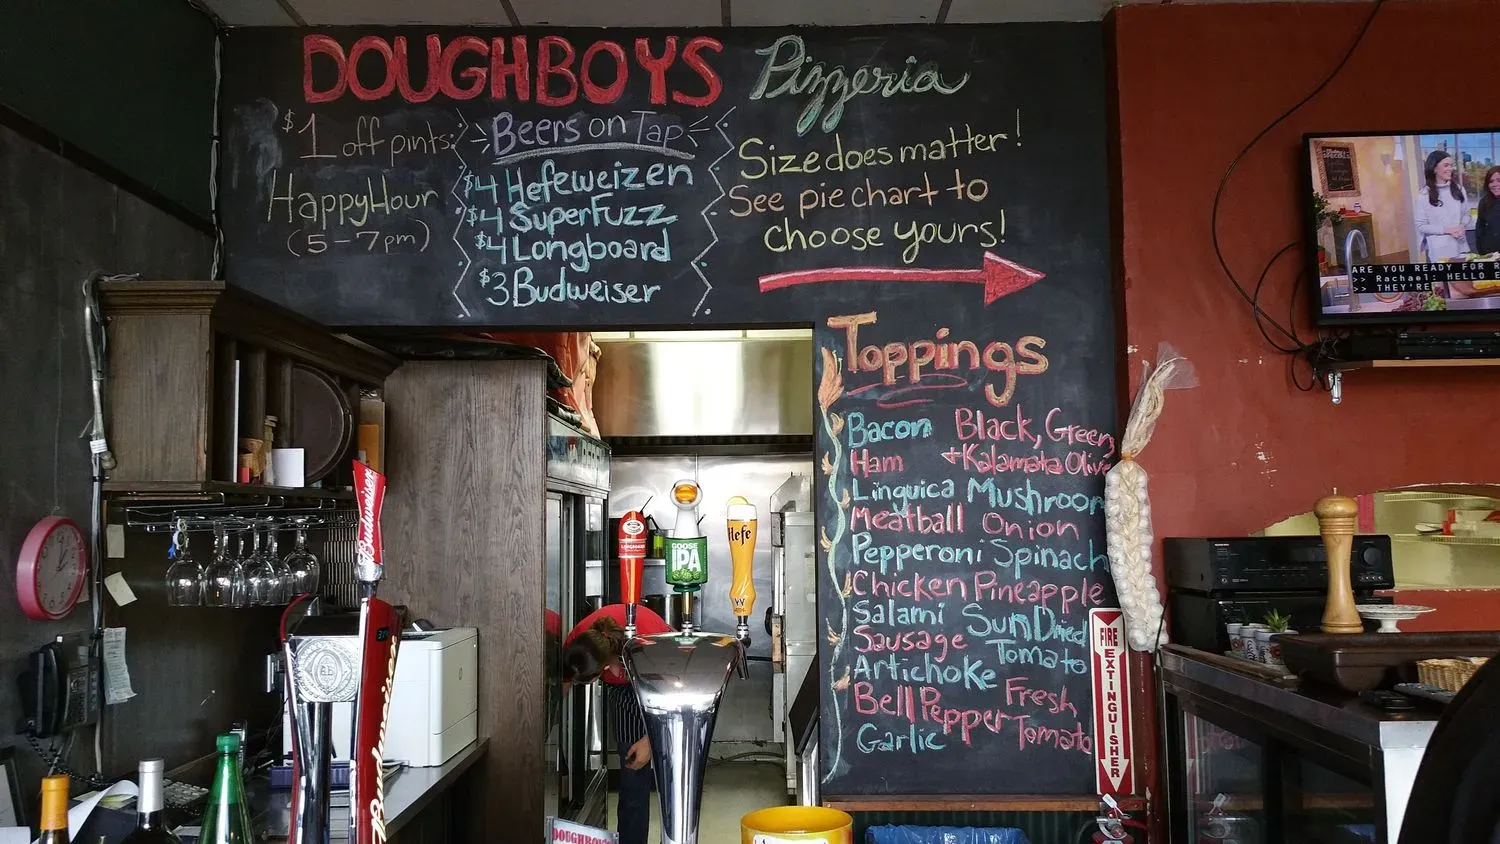 DOUGHBOYS Pizzeria
$1 off pints:
Happy Hour
(5-7pm)
Beers on Tap
$4 Hefeweizen
$4 SuperFuzz
$4 Longboard
$3 Budweiser
Size does matter!
See pie chart to
choose yours!
Toppings
Bacon
Ham
Linguica
Meatball
Pepperoni
Chicken
Salami
Sausage
Artichoke
Bell Pepper
Garlic
Black, Green,
+ Kalamata Olive
Mushroom
Onion
Spinach
Pineapple
Sun Dried
Tomato
Fresh
Tomato
ARE YOU READY FOR R
>> Rachael: HELLO E
>> THEY'RE
FIRE
EXTINGUISHER
Budweiser
GOOSE
IPA
Hefe
Budweiser
DOUGHBOYS